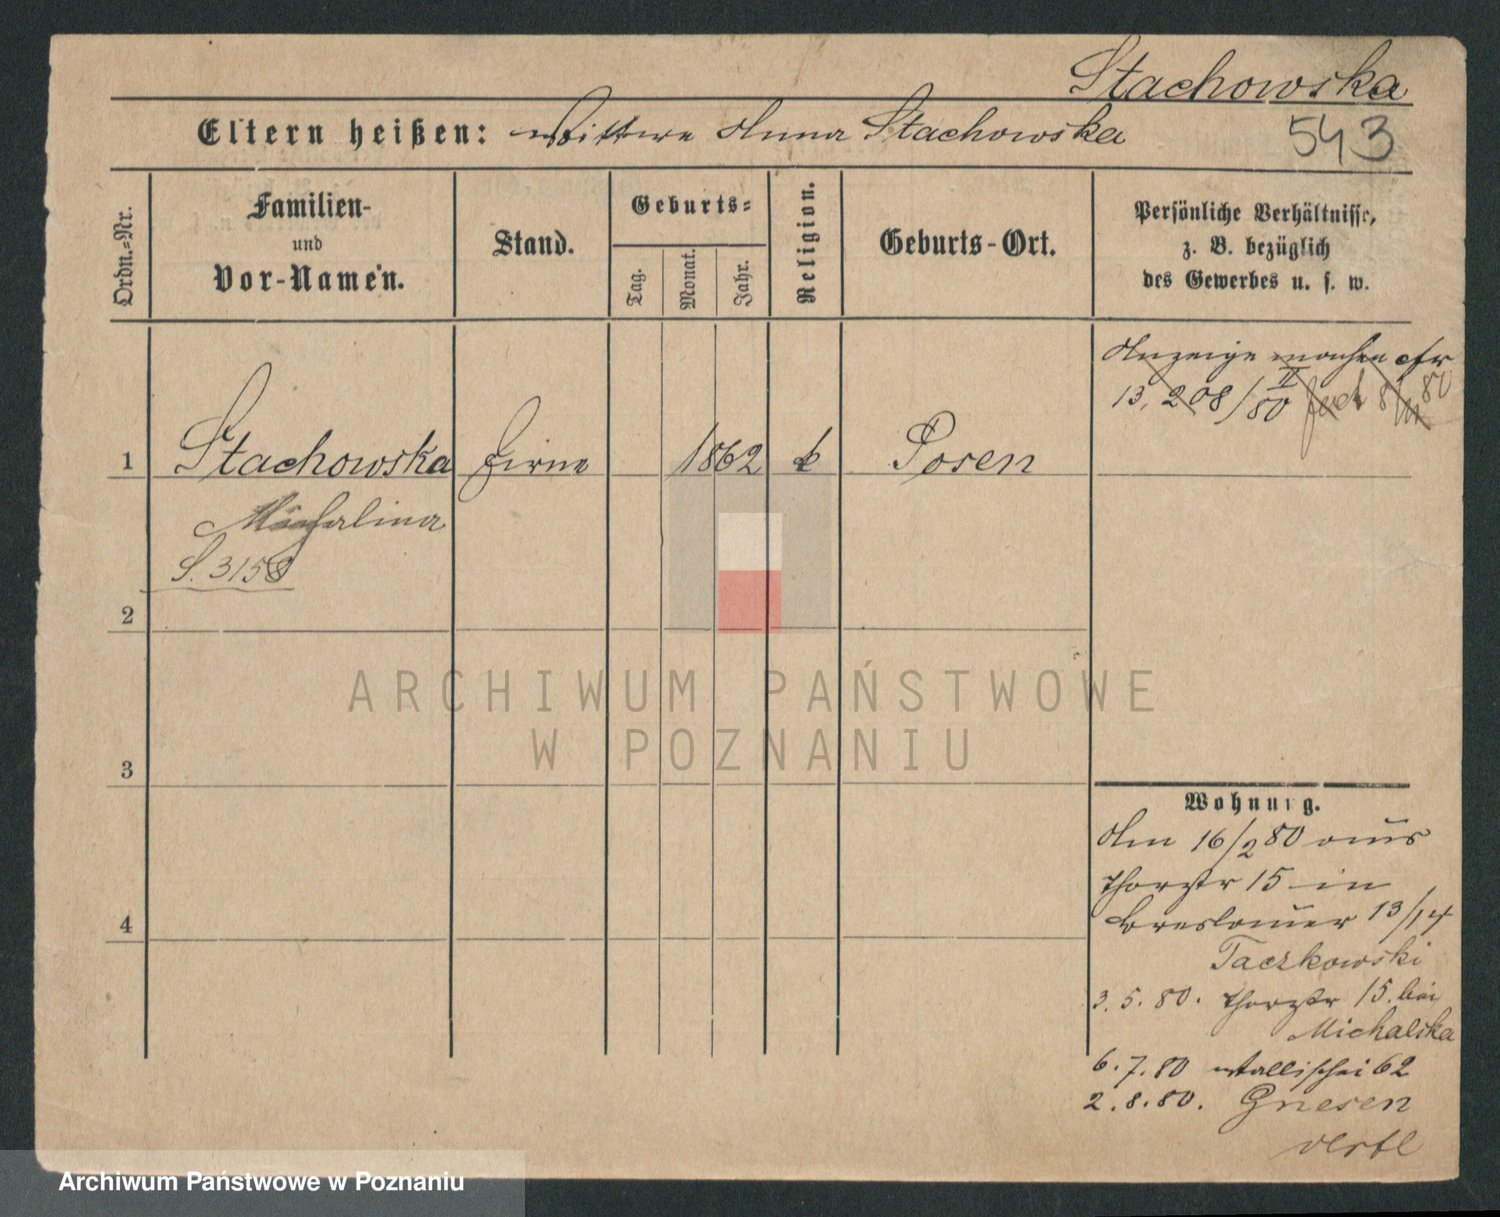 Stachowska
543
Eltern heißen: Wittwe Anna Stachowska
Ordn.-Nr.
Familien-
und
Vor-Namen.
Stand.
Geburts-
Tag.
Monat.
Jahr.
Religion.
Geburts-Ort.
Persönliche Verhältnisse,
z. B. bezüglich
des Gewerbes u. s. w.
Anzeige machen cfr
13, 208/II 80 8/ 80
1 Stachowska 1862 k Posen
Michalina
S. 3158
2
3
4
Wohnung.
Am 16/2 80 aus
Thorstr 15 in
Breslauer 13/14
Taczkowski
3. 5. 80. Thorstr 15. bei
Michalska
6. 7. 80 Wallischei 62
2. 8. 80. Gnesen
ARCHIWUM PAŃSTWOWE
W POZNANIU
Archiwum Państwowe w Poznaniu